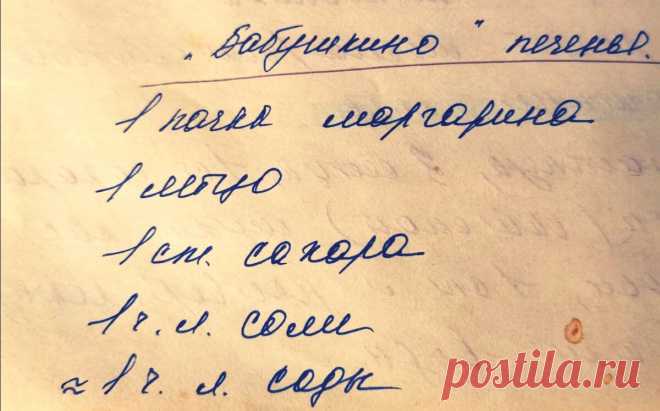 "Бабушкино" печенье.
1 пачка маргарина
1 яйцо
1 ст. сахара
1 ч. л. соли
≈ 1 ч. л. соды
postila.ru